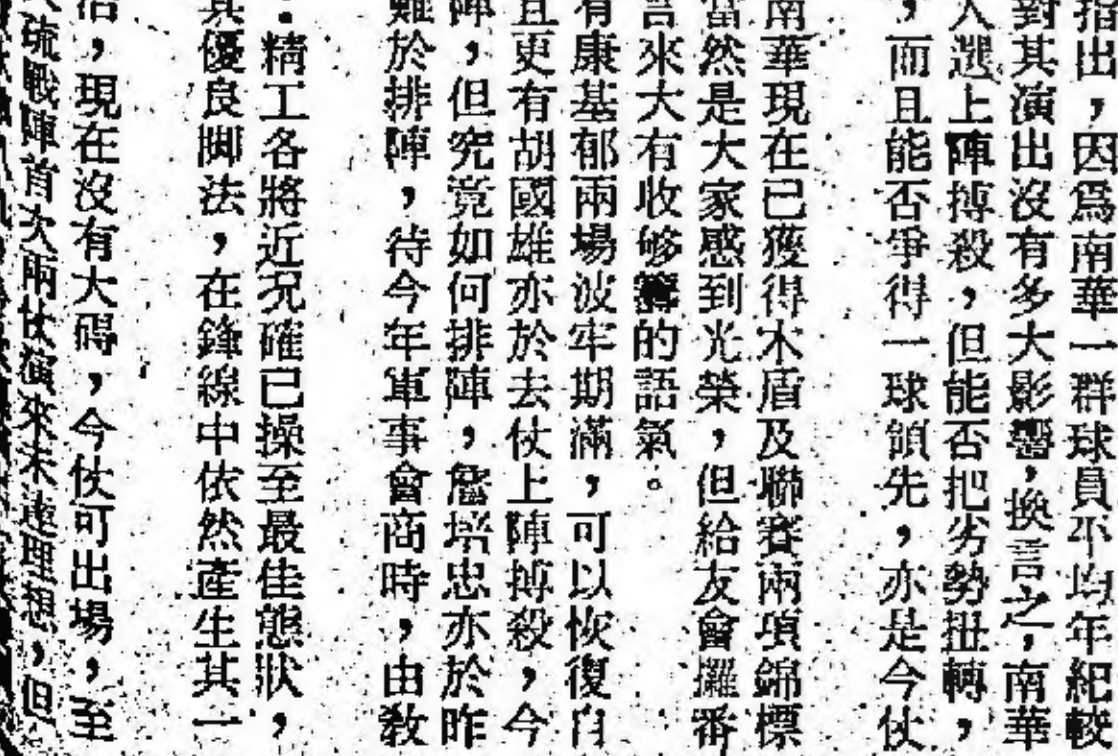 指出，因爲南華一群球員平均年紀較
對其演出沒有多大影響，換言之，南華
入選上陣搏殺，但能否把劣勢扭轉，
，而且能否爭得一球領先，亦是今仗
南華現在已獲得木盾及聯賽兩項錦標
當然是大家感到光榮，但給友會攞番
言來大有收够的語氣。
有康基郁兩場波牢期滿，可以恢復自
且更有胡國雄亦於去仗上陣搏殺，今
陣，但究竟如何排陣，詹培忠亦於昨
難於排陣，待今年軍事會商時，由教
：精工各將近況確已操至最佳態狀，
其優良脚法，在鋒線中依然產生其一
，現在沒有大碍，今仗可出場，至
硫戰陣首次兩仗演來未達理想，但